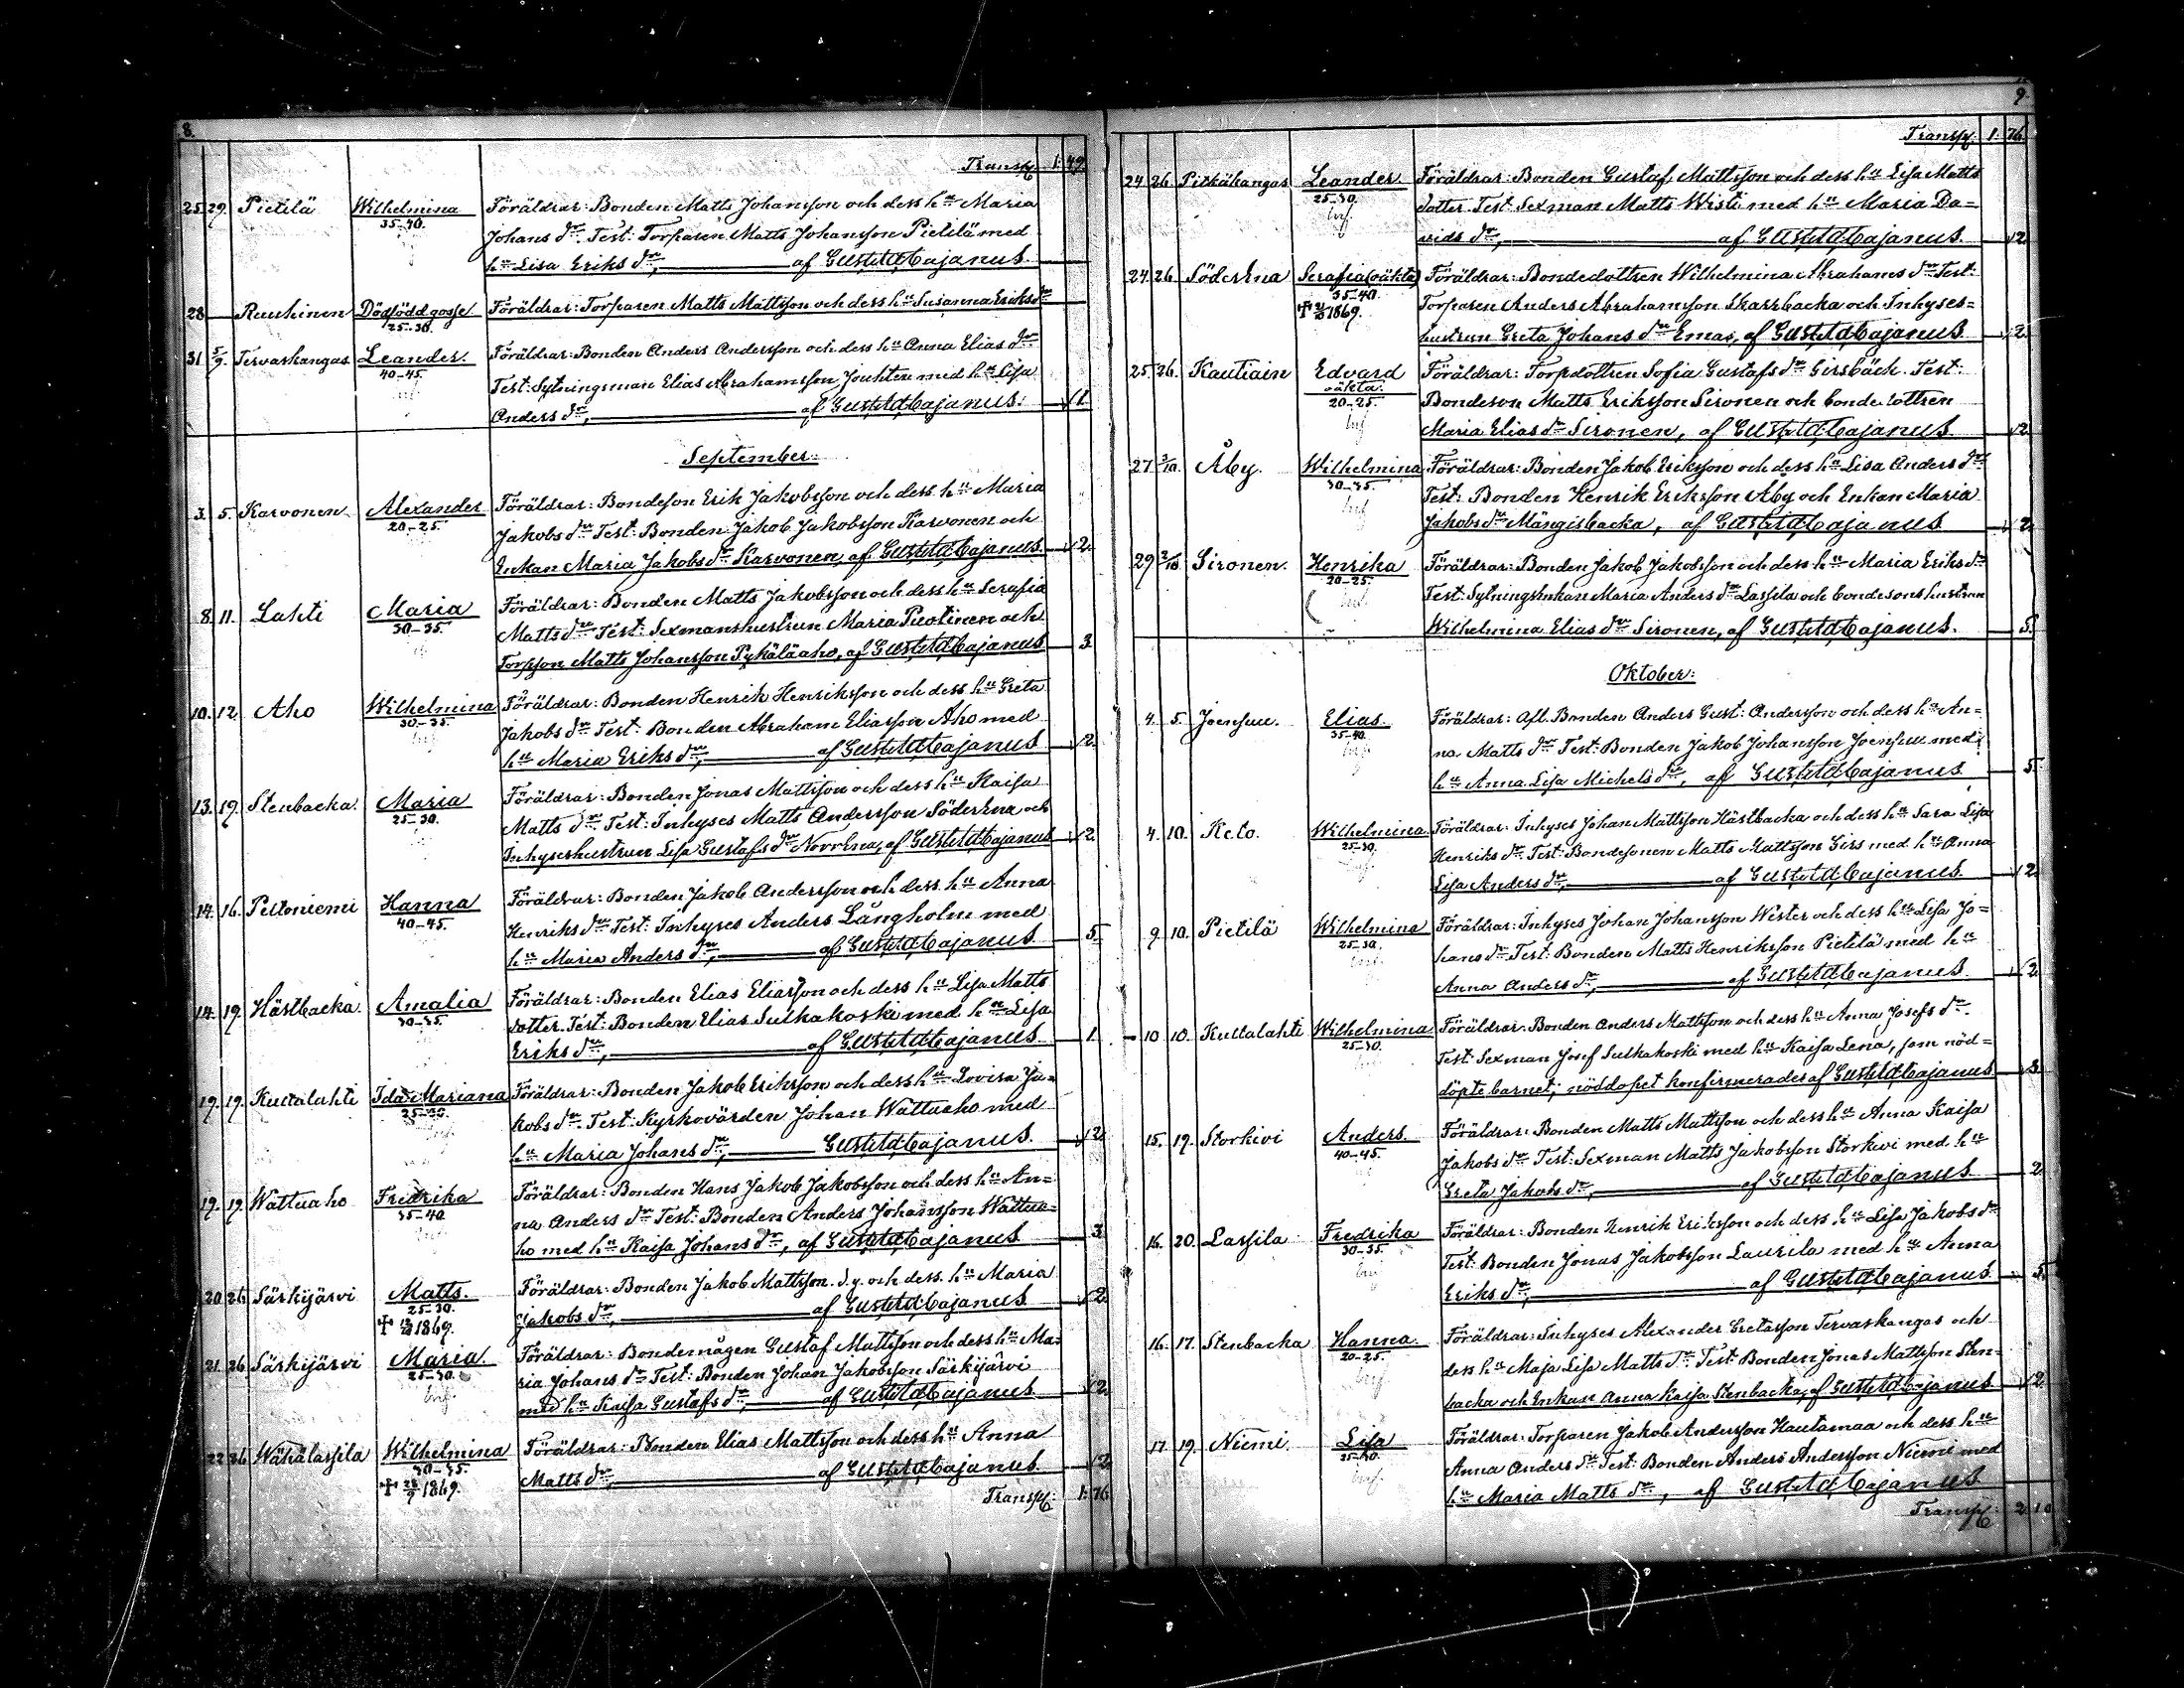 8.
Transp. 1. 49.
25. 29. Pietilä Wilhelmina Föräldrar: Bonden Matts Johansson och dess hu Maria
35-40. Johans dr. Test: Torparen Matts Johansson Pietilä med
hu Lisa Eriks dr, af Gust: Ad: Cajanus.
28 Rauhinen Dödfödd gosse Föräldrar: Torparen Matts Mattsson och dess hu Susanna Eriks dr
25-30.
31 5/9. Tervaskangas Leander. Föräldrar: Bonden Anders Andersson och dess hu Anna Elias dr
40-45. Test: Sytningsman Elias Abrahamsson Jouhten med hu Lisa
Anders dr, af Gust: Ad: Cajanus. 1
September:
3. 5. Karvonen Alexander Föräldrar: Bondeson Erik Jakobsson och dess hu Maria
20-25. Jakobs dr Test: Bonden Jakob Jakobsson Karvonen och
Enkan Maria Jakobs dr Karvonen, af Gust: Ad: Cajanus 2
8. 11. Lahti Maria Föräldrar: Bonden Matts Jakobsson och dess hu Serafia
30-35. Matts dr Test: Sexmanshustrun Maria Puotinen och
Torpson Matts Johansson Pykäläaho, af Gust: Ad: Cajanus 3.
10. 12. Aho Wilhelmina Föräldrar: Bonden Henrik Henriksson och dess hu Greta
30-35. Jakobs dr Test: Bonden Abraham Eliasson Aho med
hu Maria Eriks dr, af Gust: Ad: Cajanus 2.
13. 19. Stenbacka. Maria Föräldrar: Bonden Jonas Mattsson och dess hu Kaisa
25-30. Matts dr Test: Inhyses Matts Andersson Söderena och
Inhyseshustrun Lisa Gustafs dr Norrena, af Gust: Ad: Cajanus 2
14. 16. Peltoniemi Hanna Föräldrar: Bonden Jakob Andersson och dess hu Anna
40-45. Henriks dr Test: Inhyses Anders Långholm med
hu Maria Anders dr, af Gust: Ad: Cajanus 5.
14. 19. Hästbacka. Amalia Föräldrar: Bonden Elias Eliasson och dess hu Lisa Matts
30-35. dotter. Test: Bonden Elias Sulkakoski med hu Lisa
Eriks dr, af Gust: Ad: Cajanus. 1.
19. 19. Kultalahti Ida Mariana Föräldrar: Bonden Jakob Eriksson och dess hu Lovisa Ja-
kobs dr Test: Kyrkovärden Johan Wattuaho med
hu Maria Johans dr, Gust: Ad: Cajanus. 2
19. 19. Wattuaho Fredrika Föräldrar: Bonden Hans Jakob Jakobsson och dess hu An-
35-40 na Anders dr Test: Bonden Anders Johansson Wattua-
ho med hu Kaisa Johans dr, af Gust: Ad: Cajanus 3
20 26 Särkijärvi Matts. Föräldrar: Bonden Jakob Mattsson d.y. och dess hu Maria
25-30. Jakobs dr, af Gust: Ad: Cajanus 2
1869.
21. 26 Särkijärvi Maria. Föräldrar: Bondemågen Gustaf Mattsson och dess hu Ma-
25-30. ria Johans dr Test: Bonden Johan Jakobsson Särkijärvi
med hu Kaisa Gustafs dr, af Gust: Ad: Cajanus 2
22 26 Wähälassila Wilhelmina Föräldrar: Bonden Elias Mattsson och dess hu Anna
30-35. Matts dr, af Gust: Ad: Cajanus 2
1869.
Transp: 1. 76
9.
Transp. 1. 76.
24 26 Pitkäkangas Leander Föräldrar: Bonden Gustaf Mattsson och dess hu Lisa Matts
25-30. dotter. Test: Sexman Matts Wisti med hu Maria Da-
vids dr, af Gust: Ad: Cajanus. 2
24. 26 Söderena Serafia (oäkta) Föräldrar: Bondedottren Wilhelmina Abrahams dr Test:
35-40. Torparen Anders Abrahamsson Skarabacka och Inhyses-
1869. hustrun Greta Johans dr Emas, af Gust: Ad: Cajanus 2
25. 26. Kautiain Edvard Föräldrar: Torpdottren Sofia Gustafs dr Girsbäck. Test:
oäkta. Bondeson Matts Eriksson Sironen och bondedottren
20-25. Maria Elias dr Sironen, af Gust: Ad: Cajanus. 2
27 3/10. Åby. Wilhelmina Föräldrar: Bonden Jakob Eriksson och dess hu Lisa Anders dr
30-35. Test: Bonden Henrik Eriksson Åby och Enkan Maria
Jakobs dr Mängisbacka, af Gust: Ad: Cajanus 2
29 2/10 Sironen. Henrika Föräldrar: Bonden Jakob Jakobsson och dess hu Maria Eriks dr
20-25. Test: Sytningsenkan Maria Anders dr Lassila och bondesons hustrun
Wilhelmina Elias dr Sironen, af Gust: Ad: Cajanus. 5.
Oktober:
4. 5. Joensuu. Elias Föräldrar: Afl. Bonden Anders Gust: Andersson och dess hu An-
35-40. na Matts dr Test: Bonden Jakob Johansson Joensuu med
hu Anna Lisa Michels dr, af Gust: Ad: Cajanus 5.
4. 10. Keto. Wilhelmina Föräldrar: Inhyses Johan Mattsson Hästbacka och dess hu Sara Lisa
25-30. Henriks dr Test: Bondesonen Matts Mattsson Girs med hu Anna
Lisa Anders dr, af Gust: Ad: Cajanus. 2
9. 10. Pietilä Wilhelmina Föräldrar: Inhyses Johan Johansson Wester och dess hu Lisa Jo-
25-30. hans dr Test: Bonden Matts Henriksson Pietilä med hu
Anna Anders dr, af Gust: Ad: Cajanus 2
10 10. Kultalahti Wilhelmina Föräldrar: Bonden Anders Mattsson och dess hu Anna Josefs dr.
25-30. Test: Sexman Josef Sulkakoski med hu Kaisa Lena, som nöd-
döpte barnet; nöddopet konfirmerades af Gust: Ad: Cajanus 3.
15. 19. Storkivi Anders. Föräldrar: Bonden Matts Mattsson och dess hu Anna Kaisa
40-45. Jakobs dr Test: Sexman Matts Jakobsson Storkivi med hu
Greta Jakobs dr, af Gust: Ad: Cajanus 2
16. 20. Lassila Fredrika Föräldrar: Bonden Henrik Eriksson och dess hu Lisa Jakobs dr
30-35. Test: Bonden Jonas Jakobsson Laurila med hu Anna
Eriks dr, af Gust: Ad: Cajanus 5.
16. 17. Stenbacka Hanna. Föräldrar: Inhyses Alexander Gretasson Tervaskangas och
20-25. dess hu Maja Lisa Matts dr Test: Bonden Jonas Mattsson Sten-
backa och Enkan Anna Kaisa Stenbacka, af Gust: Ad: Cajanus 2
17 19. Niemi. Lisa Föräldrar: Torparen Jakob Andersson Hautamaa och dess hu
Anna Anders dr Test: Bonden Anders Andersson Niemi med
hu Maria Matts dr, af Gust: Ad: Cajanus
Transp: 2. 10